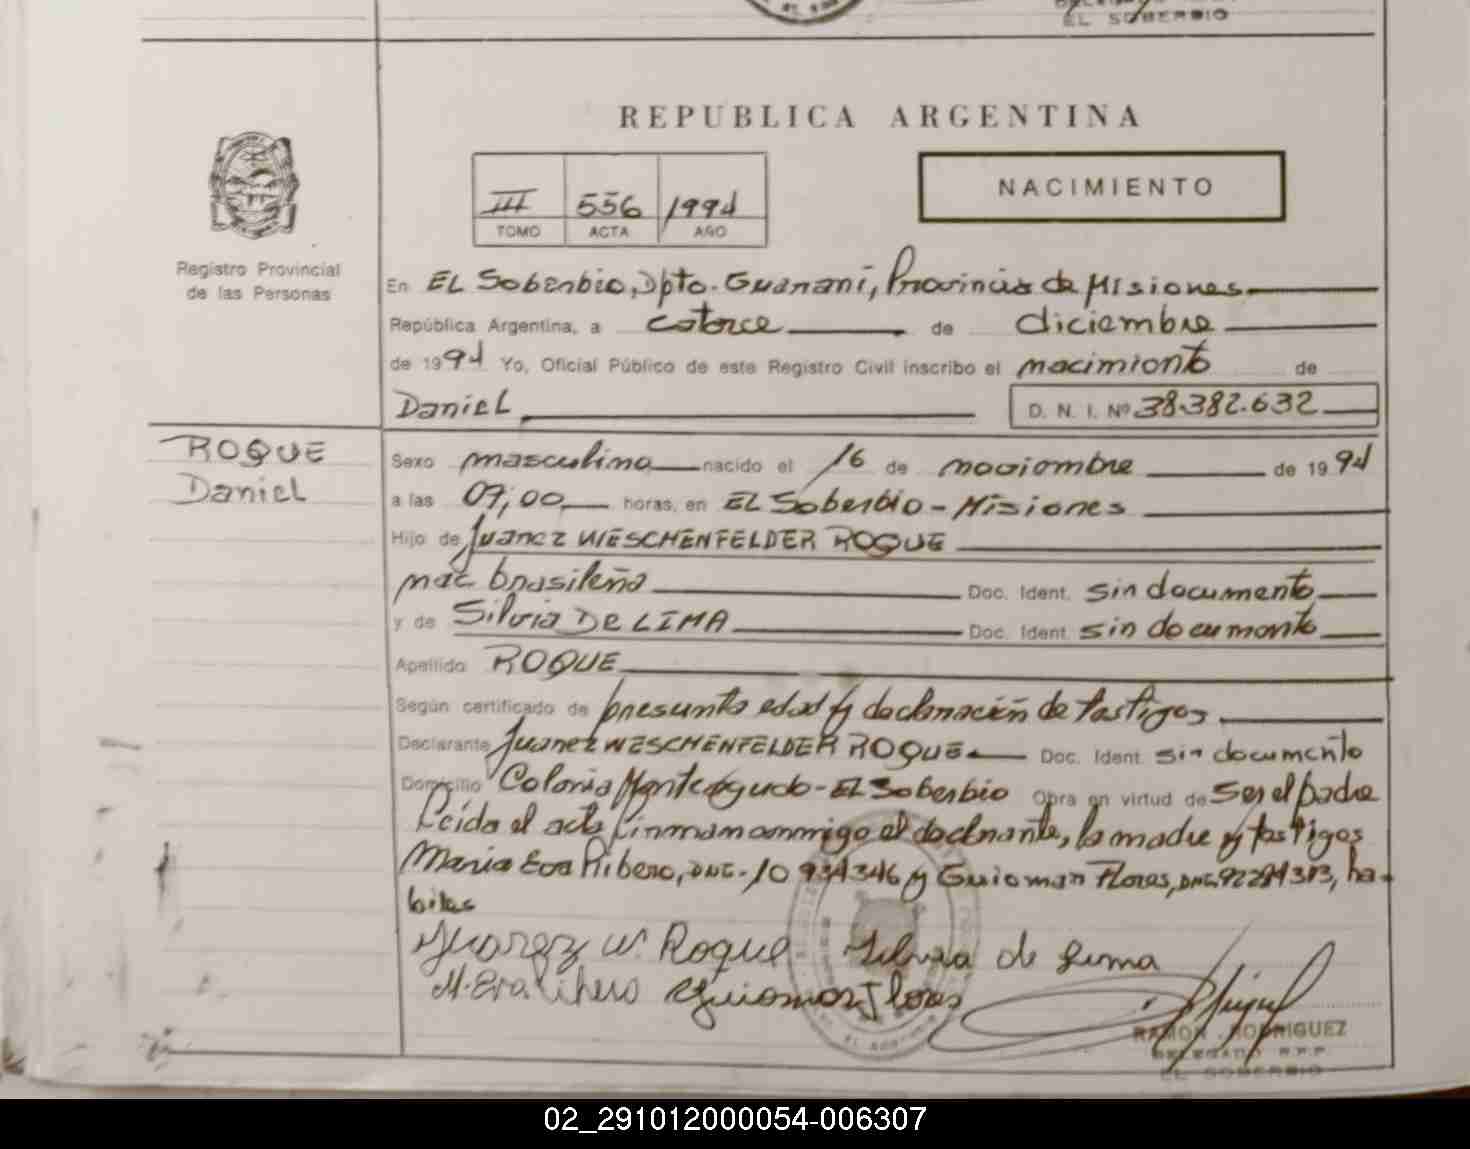 EL SOBERBIO
REPUBLICA ARGENTINA
III 556 1994
TOMO ACTA AÑO
NACIMIENTO
Registro Provincial
de las Personas
En EL Soberbio, Dpto. Guaraní, Provincia de Misiones
República Argentina, a catorce de diciembre
de 1994 Yo, Oficial Público de este Registro Civil inscribo el nacimiento de
Daniel D. N. I. Nº 38.382.632
ROQUE
Daniel
Sexo masculino nacido el 16 de noviembre de 1994
a las 07,00 horas, en EL Soberbio - Misiones
Hijo de Juarez WESCHENFELDER ROQUE
nac. brasileña Doc. Ident. sin documento
y de Silvia DE LIMA Doc. Ident. sin documento
Apellido ROQUE
Según certificado de presunta edad y declaración de testigos
Declarante Juarez WESCHENFELDER ROQUE Doc. Ident. sin documento
Domicilio Colonia Monteagudo - EL Soberbio Obra en virtud de Ser el padre
Leída el acta firman conmigo el declarante, la madre y testigos
Maria Eva Ribero, DNI. 10 934346 y Guiomar Flores, DNI. 92284313, ha-
biles
Juarez W. Roque Silvia de Lima
Guiomar Flores
RAMON RODRIGUEZ
DELEGADO R.P.P.
EL SOBERBIO
02_291012000054-006307